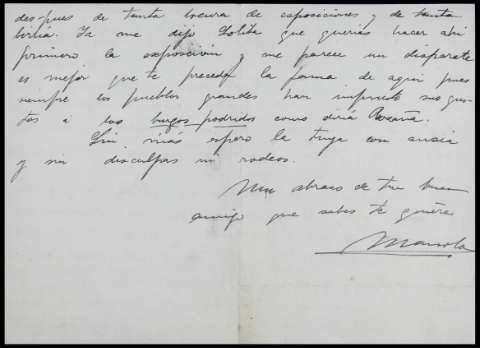 despues de tanta locura de exposiciones y de tanta
birlia. Ya me dijo Lolita que querias hacer ahi
primero la exposición y me parece un disparate
es mejor que te preceda la fama de aqui pues
siempre los pueblos grandes han impuesto sus gus-
tos á los burgos podridos como diria
Sin mas espero la tuya con ansia
y sin disculpas ni rodeos.
Un abrazo de tu buen
amigo que sabes te quiere
Manolo